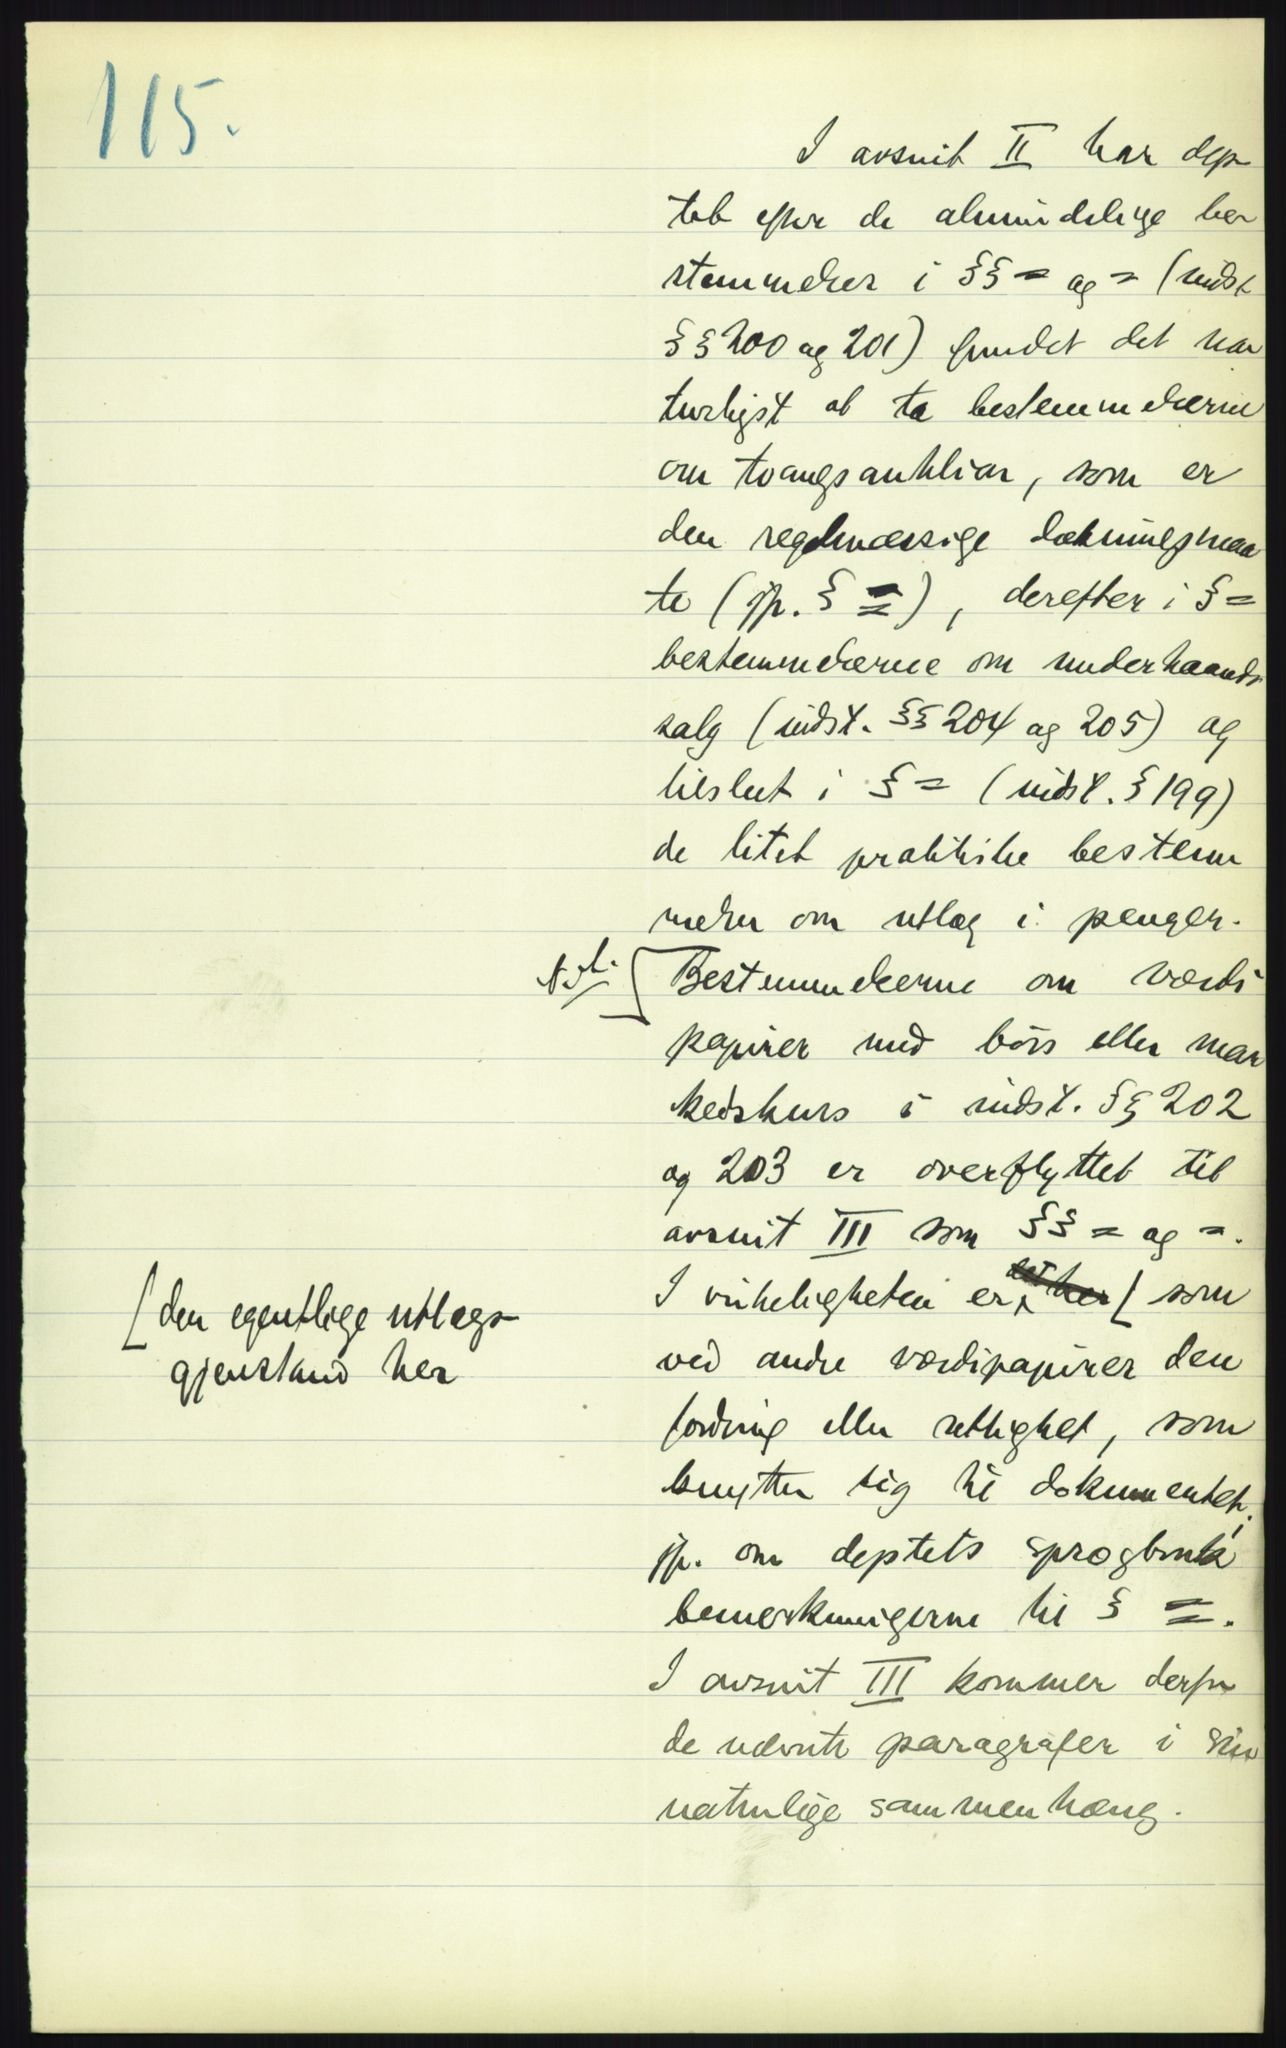 115.
I avsnit II har dep
tet efter de almindelige be
stemmelser i §§ = og = (indst
§§ 200 og 201) fundet det na
turligst at ta bestemmelserne
om tvangsauktion, som er
den regelmæssige dækningsmaa
te (jfr. § =), derefter i § =
bestemmelserne om underhaands
salg (indst. §§ 204 og 205) og
tilslut i § = (indst. § 199)
de litet praktiske bestem
melser om utlæg i penger.
Ny l. [ Bestemmelserne om værdi
papirer med børs eller mar
kedskurs i indst. §§ 202
og 203 er overflyttet til
avsnit III som §§ = og =.
I virkeligheten er det her [ som
[ den egentlige utlægs
gjenstand her
ved andre værdipapirer den
fordring eller rettighet, som
knytter sig til dokumentet;
jfr. om deptets sprogbruk
bemerkningerne til § =.
I avsnit III kommer derfor
de nævnte paragrafer i sin
naturlige sammenhæng.